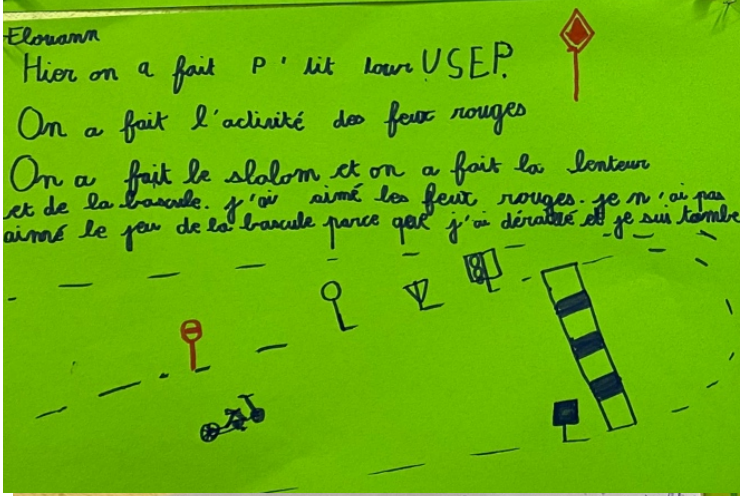 Elouann
Hier on a fait P'tit tour USEP.
On a fait l'activité des feux rouges
On a fait le slalom et on a fait la lenteur
et de la bascule. j'ai aimé les feux rouges. je n'ai pas
aimé le jeu de la bascule parce que j'ai déraillé et je suis tombé